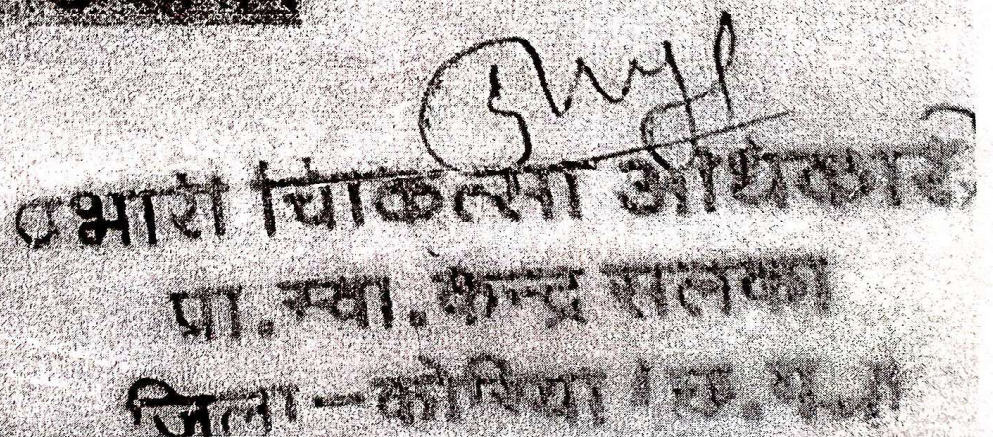 प्रभारी चिकित्सा अधिकारी
प्रा.स्वा.केन्द्र सलका
जिला-कोरिया